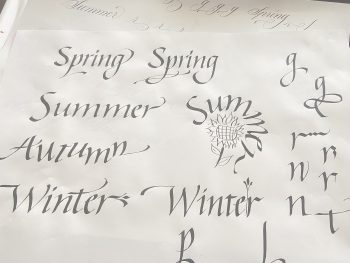 Summer g g g Spring
Spring Spring g
g
Summer Summer
Autumn r
n r
Winter Winter n t
R